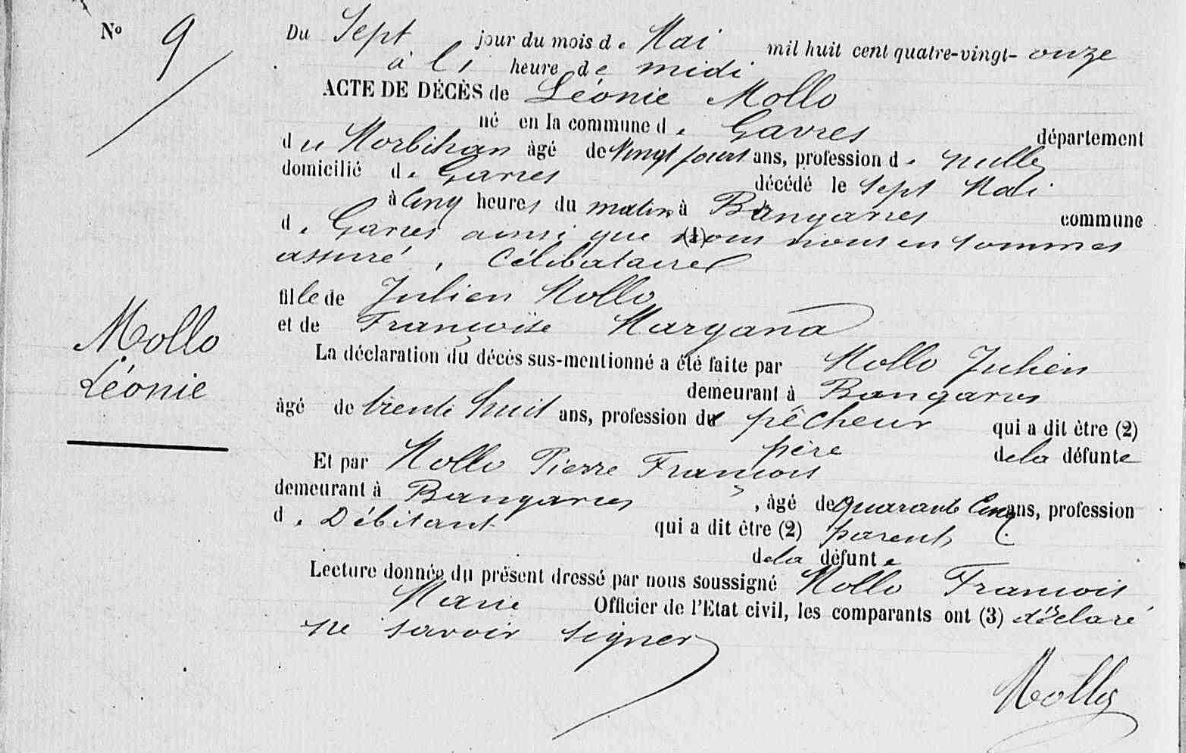 N° 9
Du Sept jour du mois de Mai mil huit cent quatre-vingt-onze
à heure de midi
ACTE DE DÉCÈS de Léonie Mollo
né en la commune de Gavres département
du Morbihan âgé de vingt jours ans, profession de nulle
domicilié de Gavres décédé le sept Mai
à cinq heures du matin à Bangavres commune
de Gavres ainsi que (1) nous nous en sommes
assuré, Célibataire
fille de Julien Mollo
et de Françoise Margana
Mollo
Léonie
La déclaration du décès sus-mentionné a été faite par Mollo Julien
demeurant à Bangavres
âgé de trente huit ans, profession de pêcheur qui a dit être (2)
père de la défunte
Et par Mollo Pierre François
demeurant à Bangavres, âgé de quarante cinq ans, profession
de Débitant qui a dit être (2) parent
de la défunte
Lecture donnée du présent dressé par nous soussigné Mollo François
Officier de l'Etat civil, les comparants ont (3) déclaré
ne savoir signer
Mollo